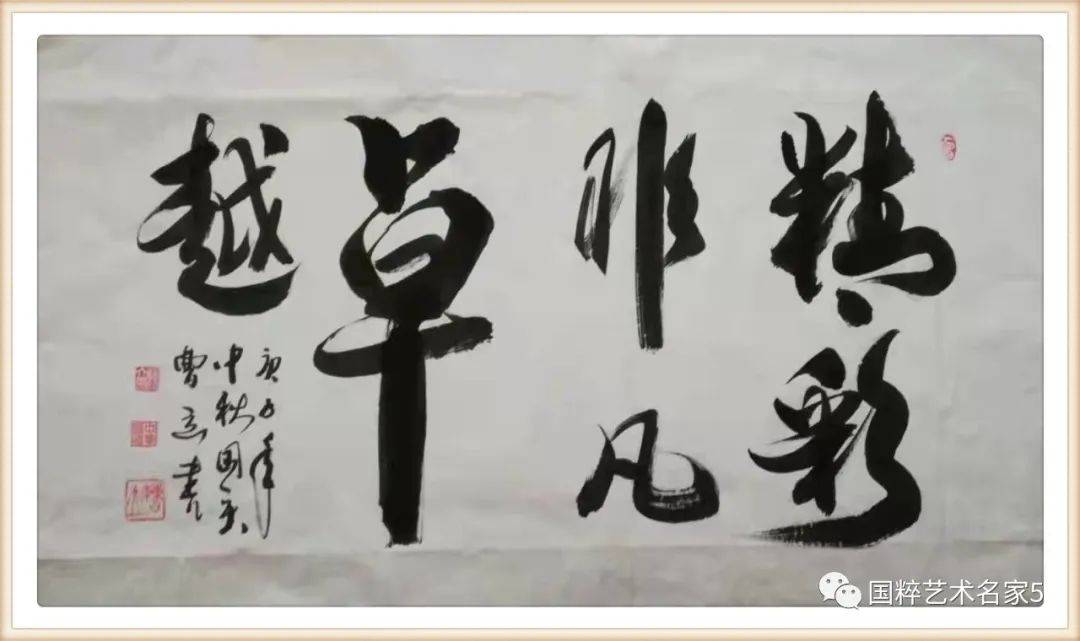 精彩
非凡
卓
越
庚子年
中秋国庆
曹 书
国粹艺术名家5